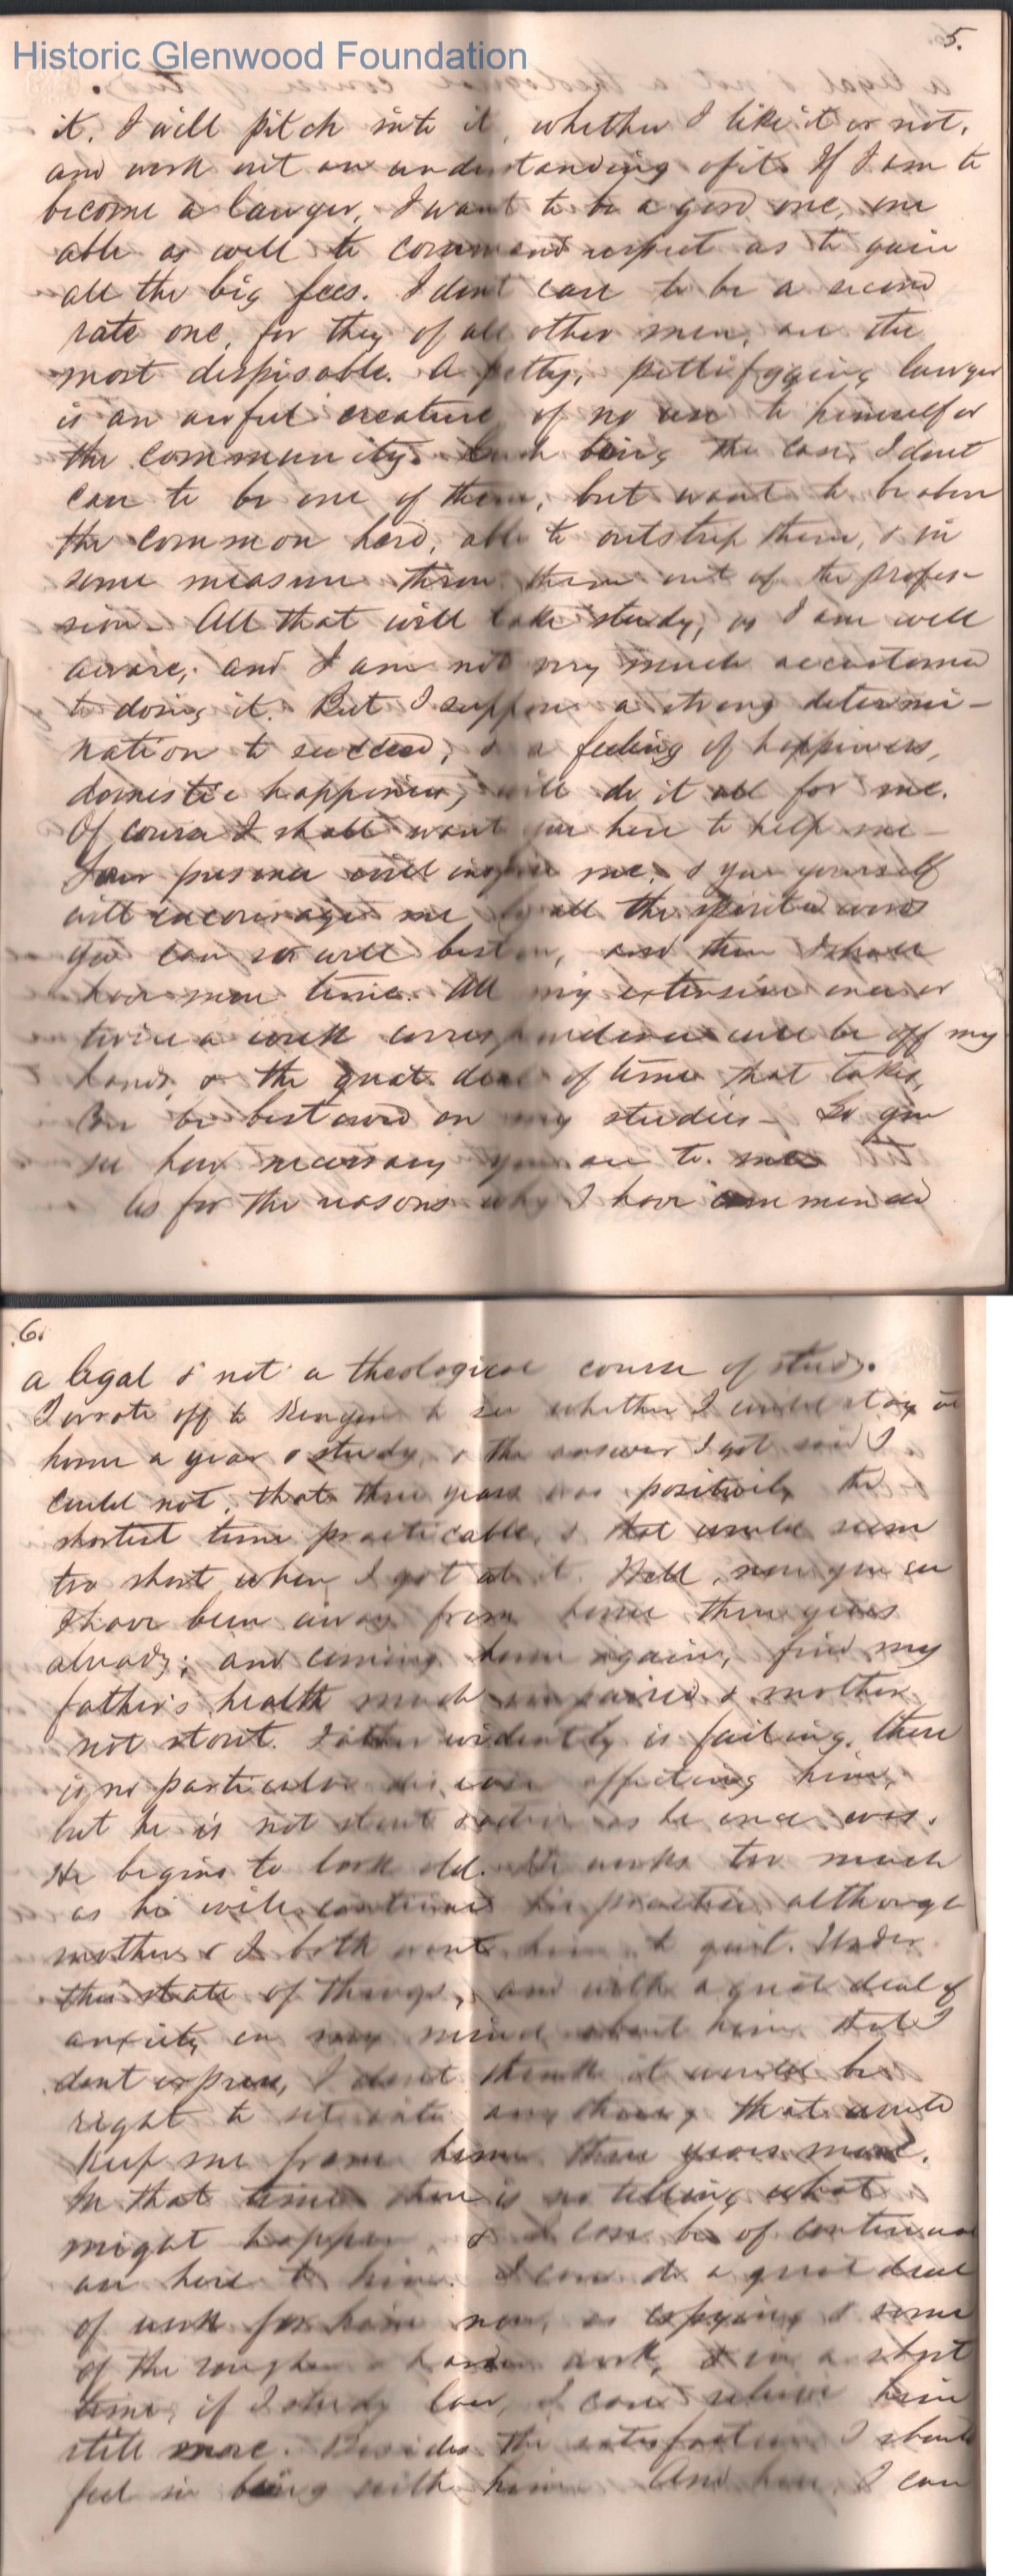 Historic Glenwood Foundation
5.
it. I will pitch into it, whether I like it or not,
and work out an understanding of it. If I am to
become a lawyer, I want to be a good one, one
able as well to command respect as to gain
all the big fees. I dont care to be a second
rate one, for they of all other men, are the
most dispisable. A petty, pettifogging lawyer
is an awful creature of no use to himself or
the community. Such being the case, I dont
care to be one of them, but want to be above
the common herd, able to outstrip them, & in
some measure throw them out of the profes-
sion - All that will take study, as I am well
aware, and I am not very much accustomed
to doing it. But I suppose a strong determi-
nation to succeed, & a feeling of happiness,
domestic happiness, will do it all for me.
Of course I shall want you here to help me -
Your presence will inspire me, & you yourself
will encourage me by all the spirited words
you can so well bestow, and then I shall
have more time. All my extensive once or
twice a week correspondence will be off my
hands, & the great deal of time that takes,
Can be bestowed on my studies - So you
see how necessary you are to me
As for the reasons why I have commenced
6.
a legal & not a theological course of study.
I wrote off to Kenyon to see whether I could stay at
home a year & study, & the answer I got said I
could not, that three years was positively the
shortest time practicable, & that would seem
too short when I got at it. Well, now you see
I have been away from home three years
already; and coming home again, find my
father's health much impaired & mother
not stout. Father evidently is failing, there
is no particular disease affecting him,
but he is not stout as he once was.
He begins to look old. He works too much
as he will continue his practice although
mother & I both want him to quit. Under
this state of things, and with a great deal of
anxiety on my mind about him that I
dont express, I dont think it would be
right to set into anything that would
keep me from home three years more.
In that time there is no telling what
might happen & I can be of continual
use here to him. I can do a great deal
of work for him now, as copying & some
of the rougher & harder work, & in a short
time, if I study law, I can relieve him
still more. Besides the satisfaction I should
feel in being with him. And here, I can